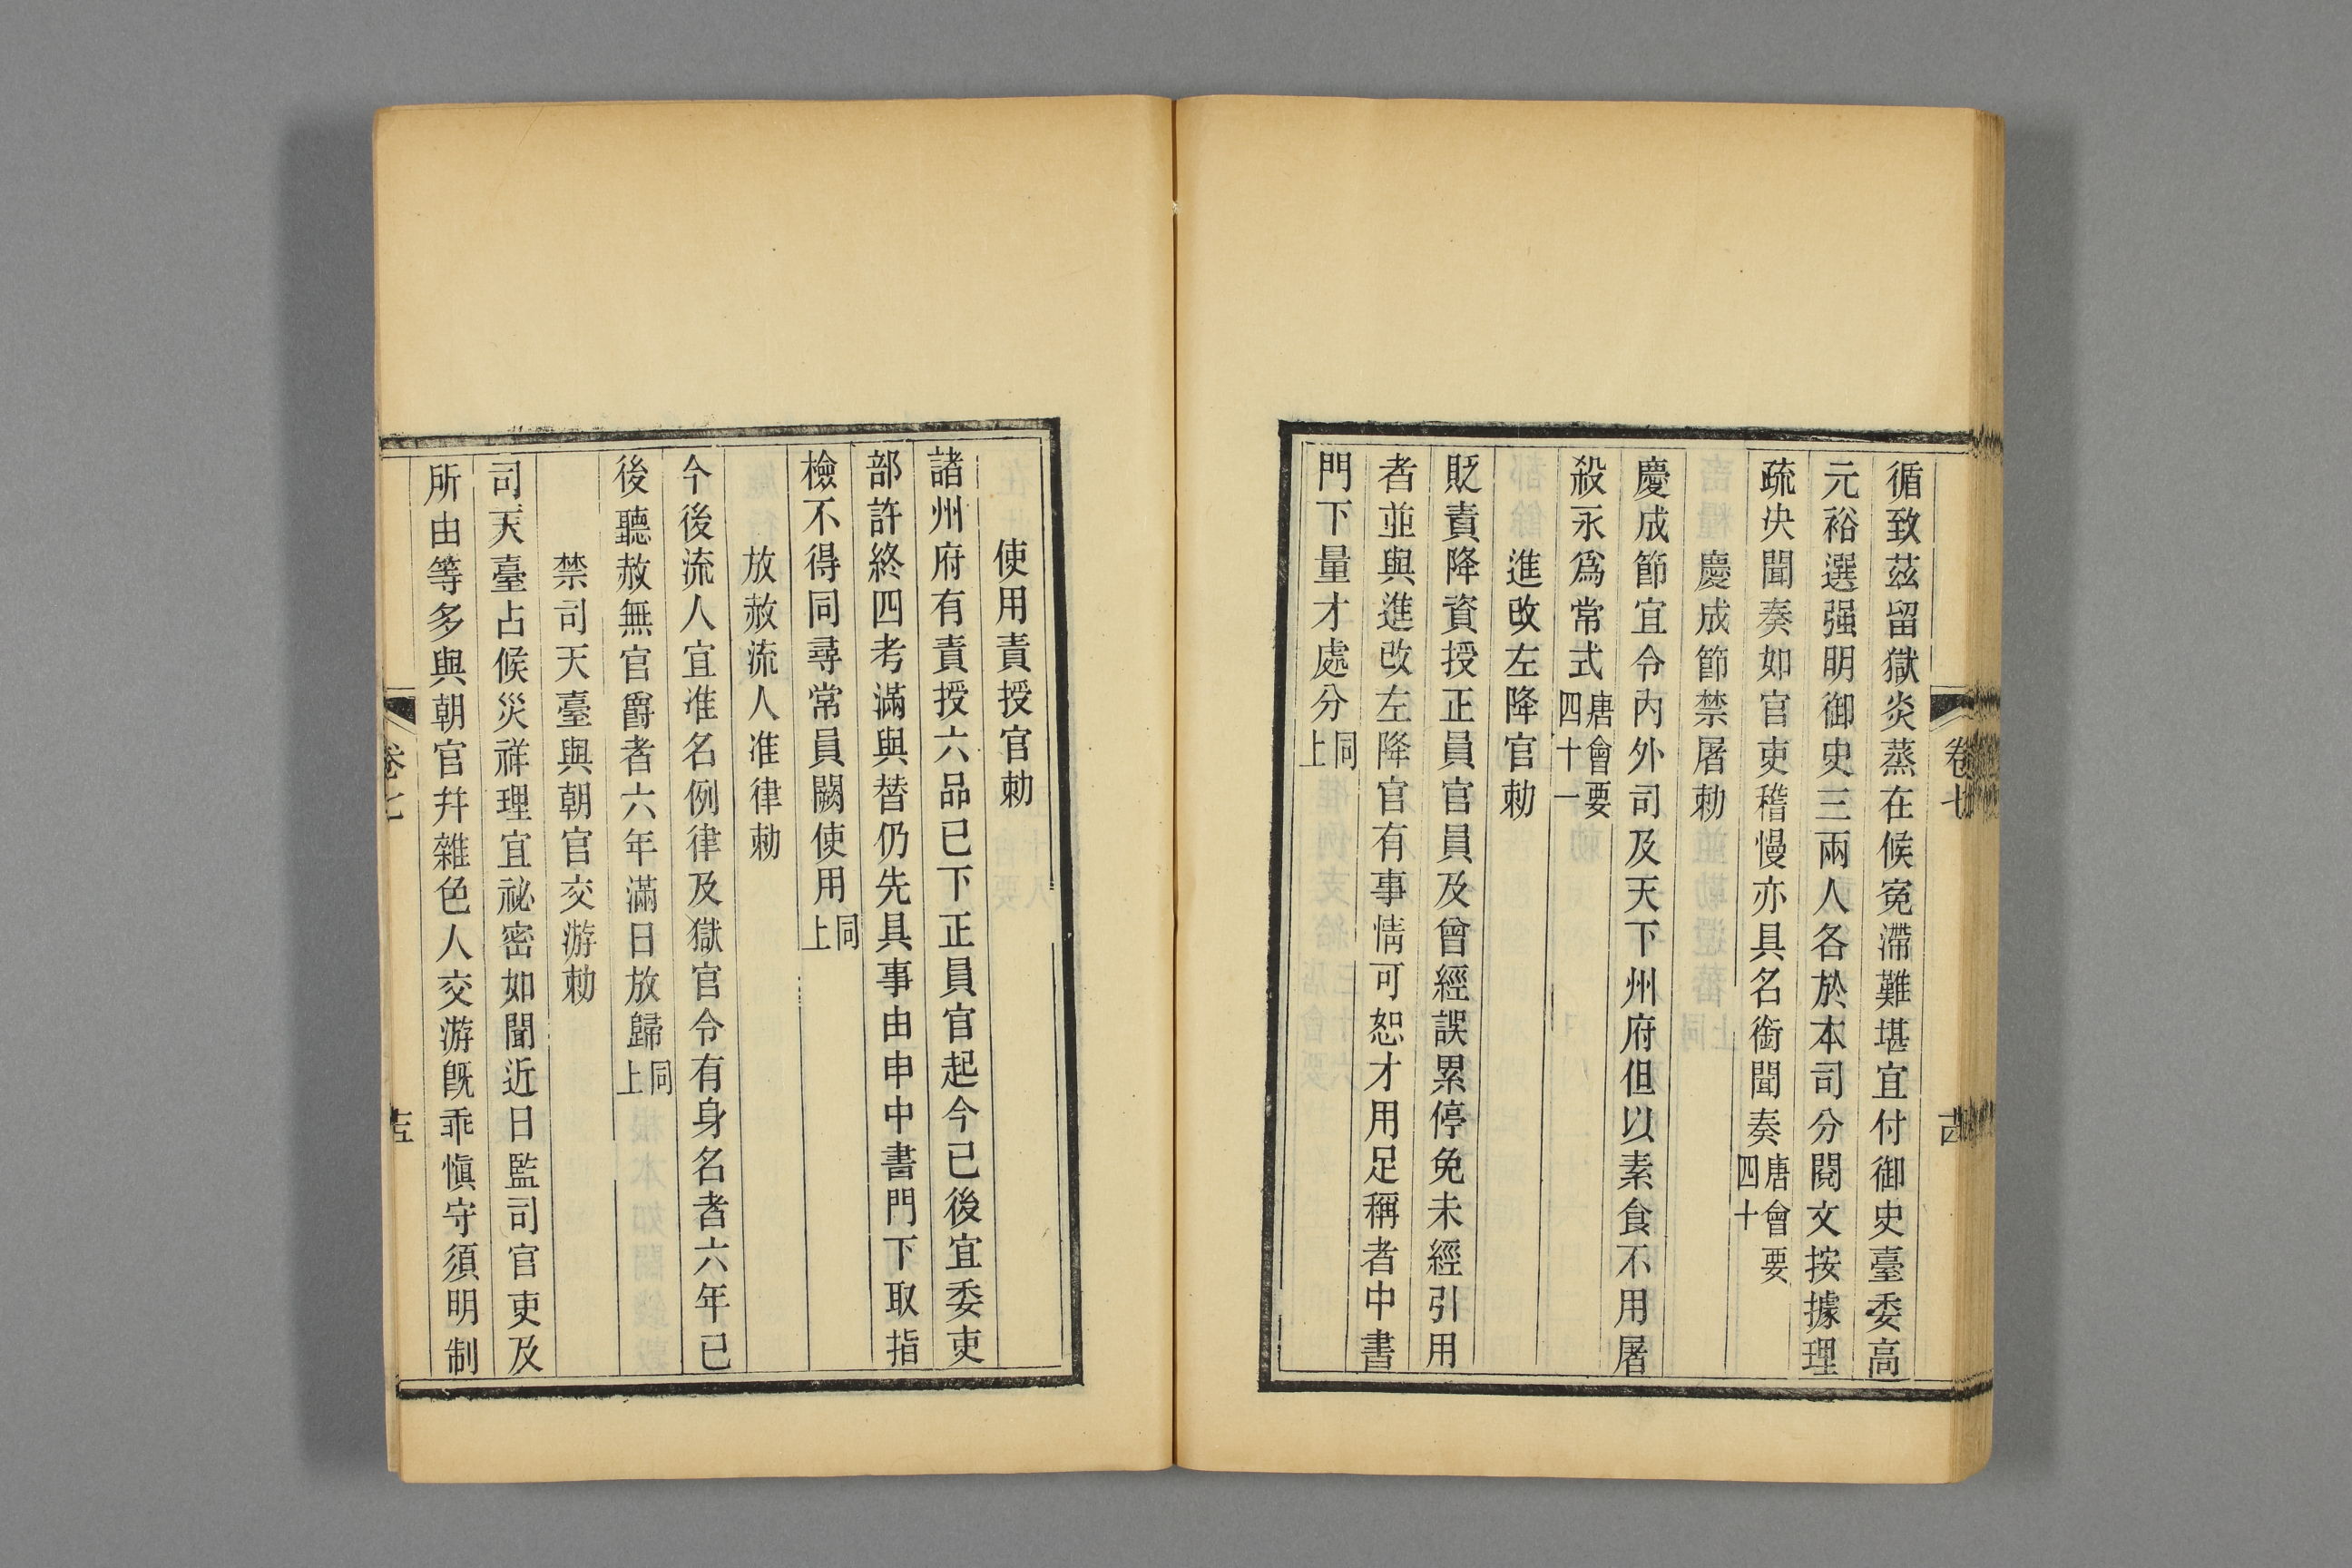 循致茲留獄炎蒸在候寃滯難堪宜付御史臺委高
元裕選强明御史三兩人各於本司分閱文按據理
疏决聞奏如官吏稽慢亦具名銜聞奏唐會要四十
慶成節禁屠勅
慶成節宜令內外司及天下州府但以素食不用屠
殺永爲常式唐會要四十一
進改左降官勅
貶責降資授正員官員及曾經誤累停免未經引用
者並與進改左降官有事情可恕才用足稱者中書
門下量才處分同上
卷七
十四
使用責授官勅
諸州府有責授六品已下正員官起今已後宜委吏
部許終四考滿與替仍先具事由申中書門下取指
檢不得同尋常員闕使用同上
放赦流人准律勅
今後流人宜准名例律及獄官令有身名者六年已
後聽赦無官爵者六年滿日放歸同上
禁司天臺與朝官交游勅
司天臺占候災祥理宜祕密如聞近日監司官吏及
所由等多與朝官幷雜色人交游旣乖愼守須明制
卷七
十五